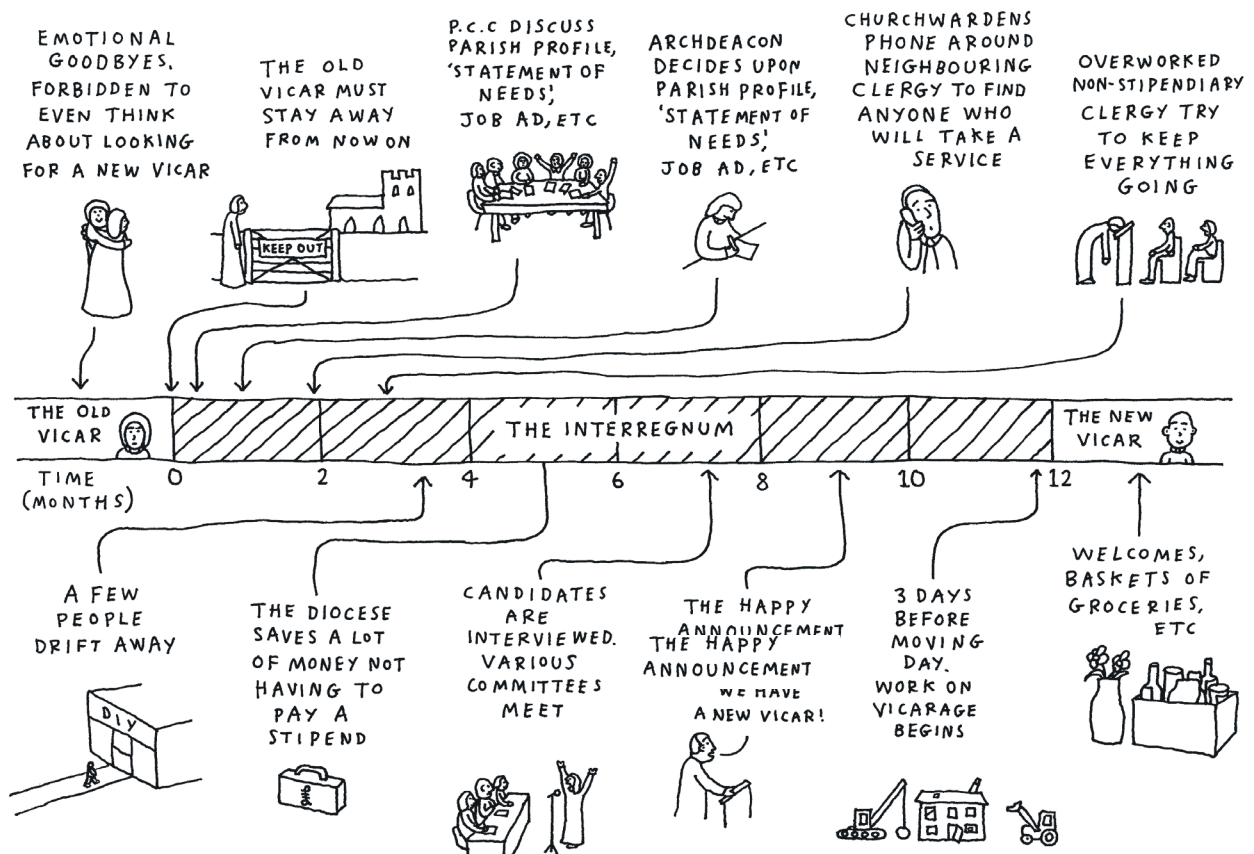 EMOTIONAL
GOODBYES.
FORBIDDEN TO
EVEN THINK
ABOUT LOOKING
FOR A NEW VICAR
THE OLD
VICAR MUST
STAY AWAY
FROM NOW ON
KEEP OUT
P.C.C DISCUSS
PARISH PROFILE,
'STATEMENT OF
NEEDS',
JOB AD, ETC
ARCHDEACON
DECIDES UPON
PARISH PROFILE,
'STATEMENT OF
NEEDS',
JOB AD, ETC
CHURCHWARDENS
PHONE AROUND
NEIGHBOURING
CLERGY TO FIND
ANYONE WHO
WILL TAKE A
SERVICE
OVERWORKED
NON-STIPENDIARY
CLERGY TRY
TO KEEP
EVERYTHING
GOING
THE OLD
VICAR
THE INTERREGNUM
THE NEW
VICAR
TIME
(MONTHS)
0 2 4 6 8 10 12
A FEW
PEOPLE
DRIFT AWAY
DIY
THE DIOCESE
SAVES A LOT
OF MONEY NOT
HAVING TO
PAY A
STIPEND
CANDIDATES
ARE
INTERVIEWED.
VARIOUS
COMMITTEES
MEET
THE HAPPY
ANNOUNCEMENT
THE HAPPY
ANNOUNCEMENT
WE HAVE
A NEW VICAR!
3 DAYS
BEFORE
MOVING
DAY.
WORK ON
VICARAGE
BEGINS
WELCOMES,
BASKETS OF
GROCERIES,
ETC